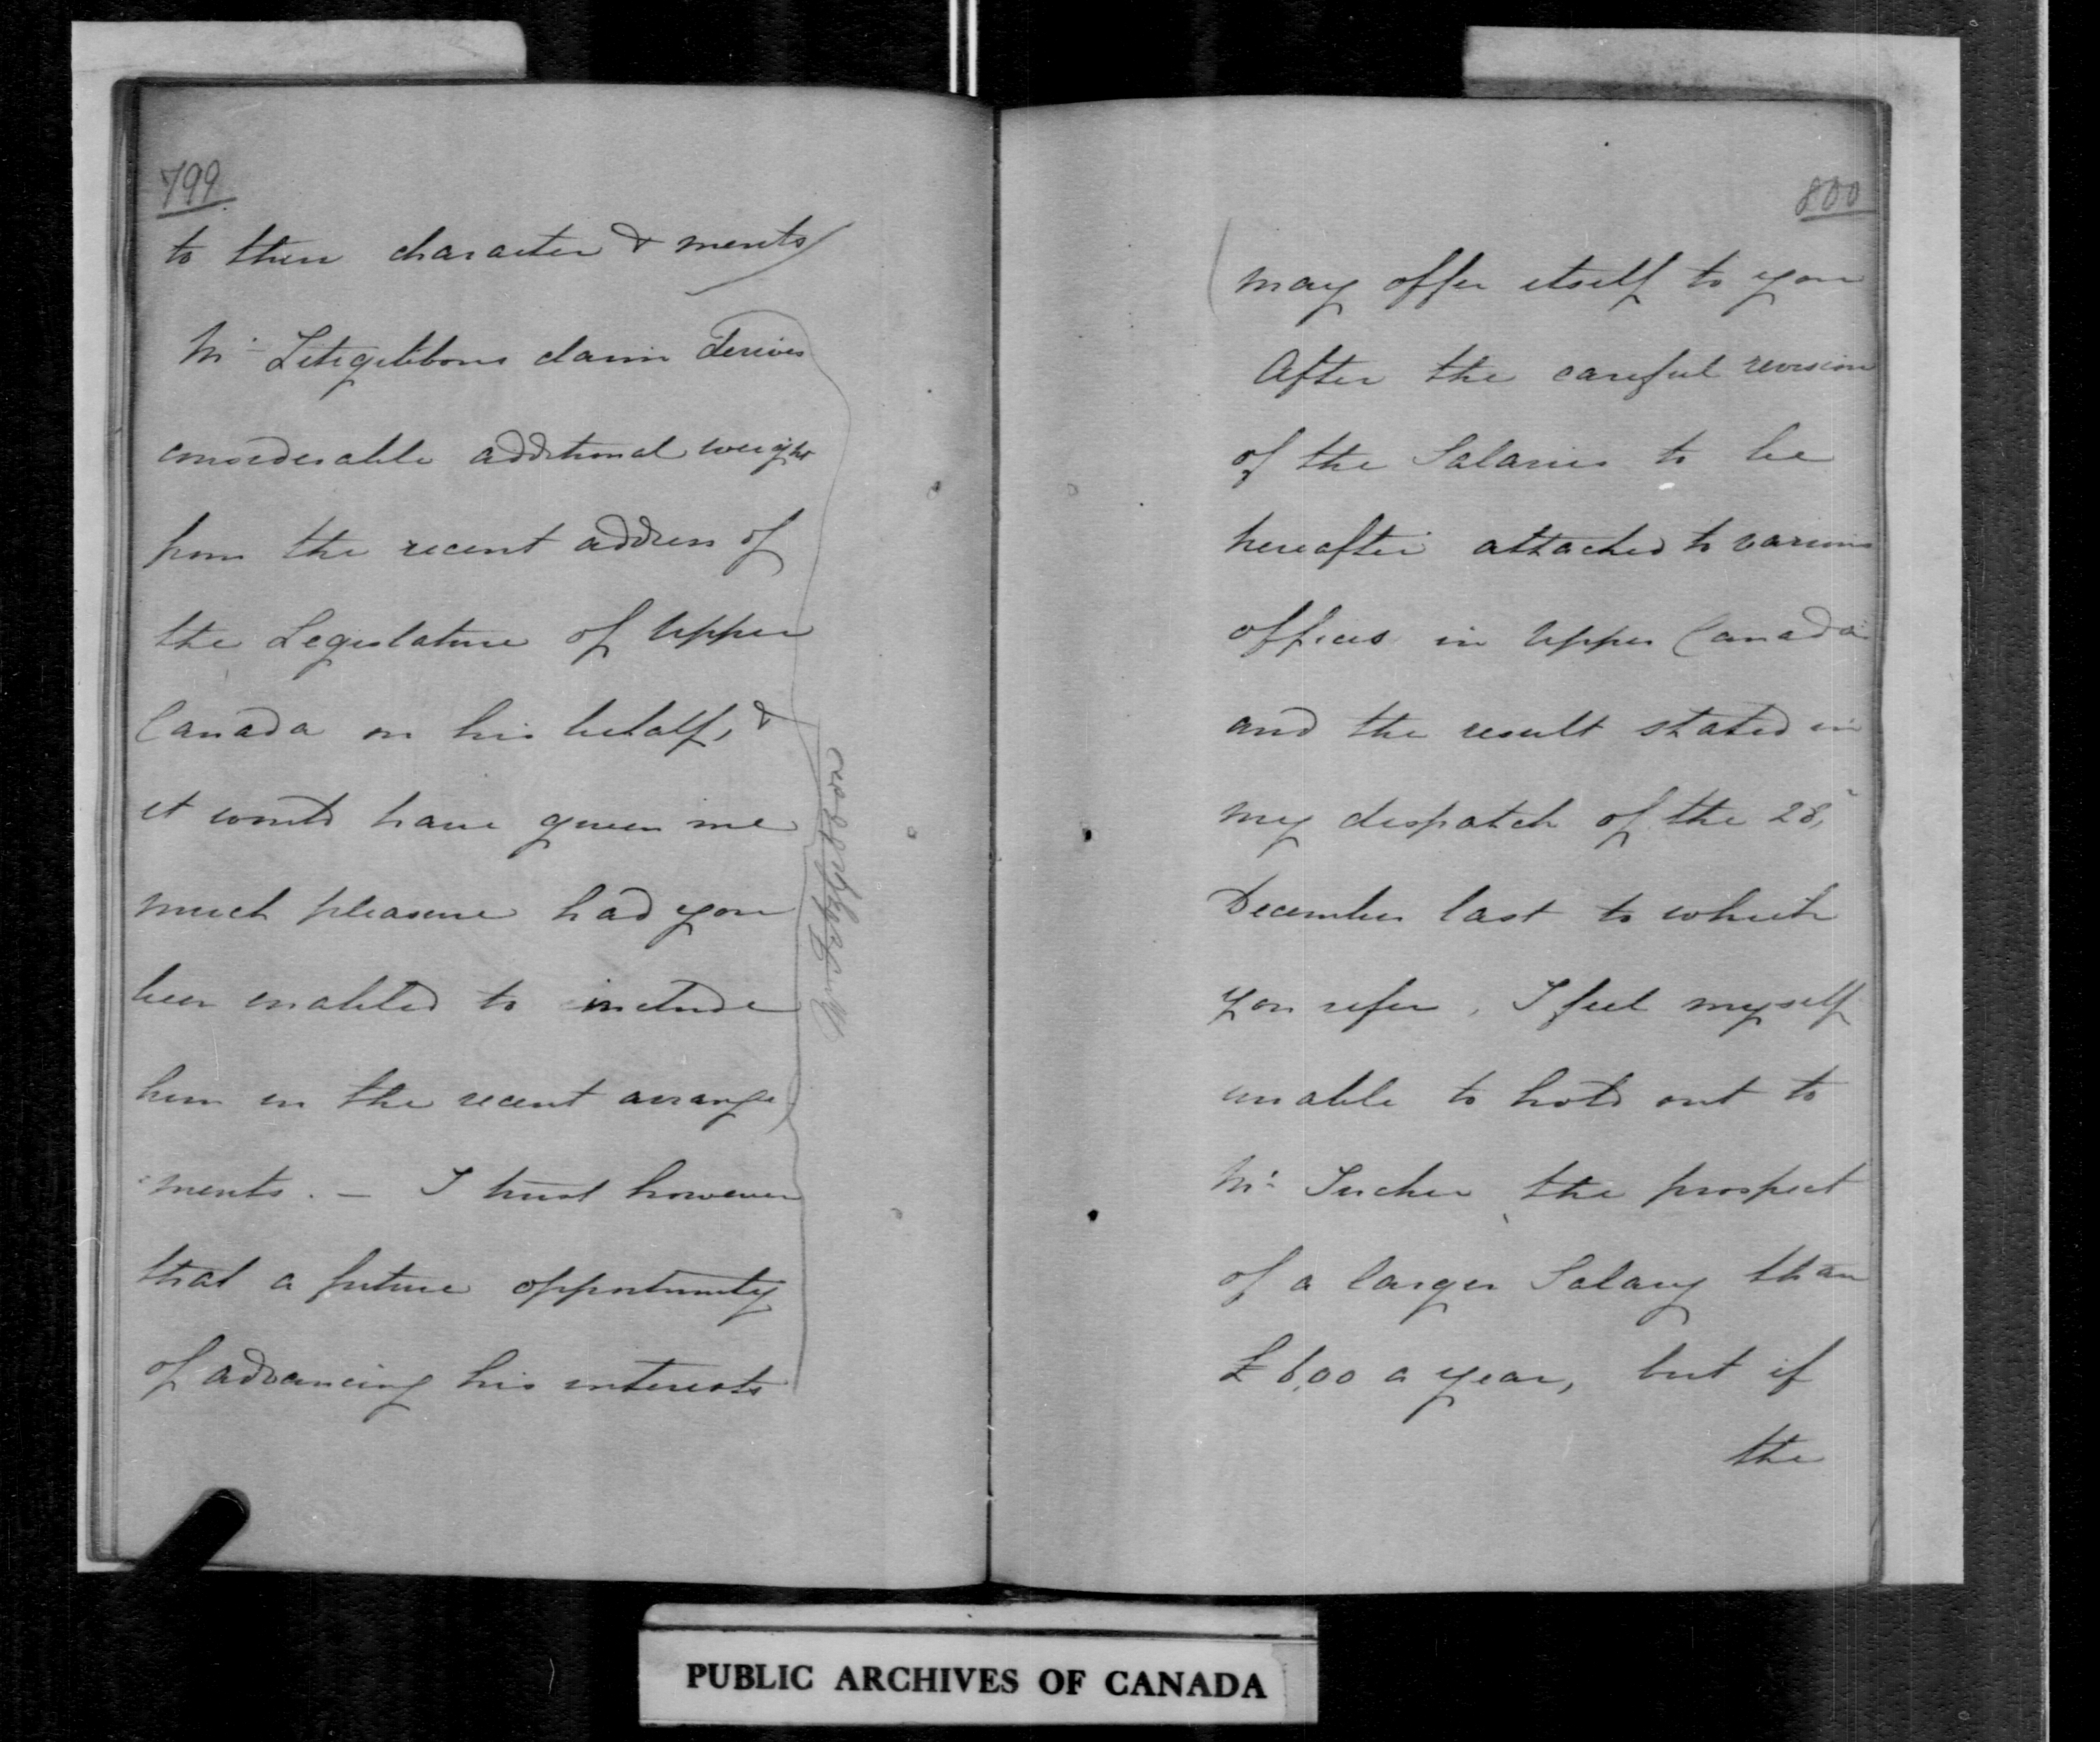 799
to their character & merits
Mr. Fitzgibbons claim derives
considerable additional weight
from the recent address of
the Legislature of Upper
Canada on his behalf, &
it would have given me
much pleasure had you
been enabled to include
him in the recent arrange
ments. — I trust however
that a future opportunity
of advancing his interests
Mr Fitzgibbon
800
may offer itself to you
After the careful revision
of the Salaries to be
hereafter attached to various
offices in Upper Canada
and the result stated in
my despatch of the 28,
December last to which
you refer, I feel myself
unable to hold out to
Mr. Tucker the prospect
of a larger Salary than
£600 a year, but if
the
PUBLIC ARCHIVES OF CANADA